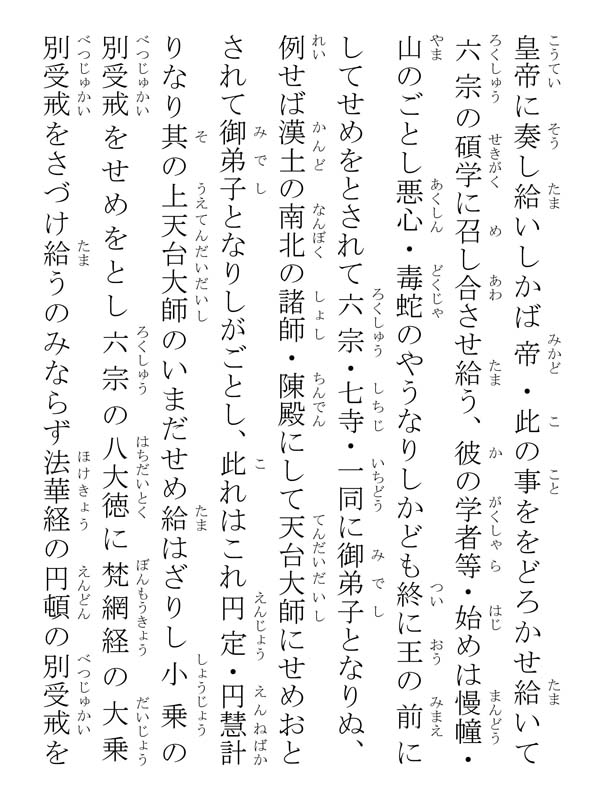 皇帝に奏し給いしかば帝・此の事ををどろかせ給いて
六宗の碩学に召し合させ給う、彼の学者等・始めは慢幢・
山のごとし悪心・毒蛇のやうなりしかども終に王の前に
してせめをとされて六宗・七寺・一同に御弟子となりぬ、
例せば漢土の南北の諸師・陳殿にして天台大師にせめおと
されて御弟子となりしがごとし、此れはこれ円定・円慧計
りなり其の上天台大師のいまだせめ給はざりし小乗の
別受戒をせめをとし六宗の八大徳に梵網経の大乗
別受戒をさづけ給うのみならず法華経の円頓の別受戒を